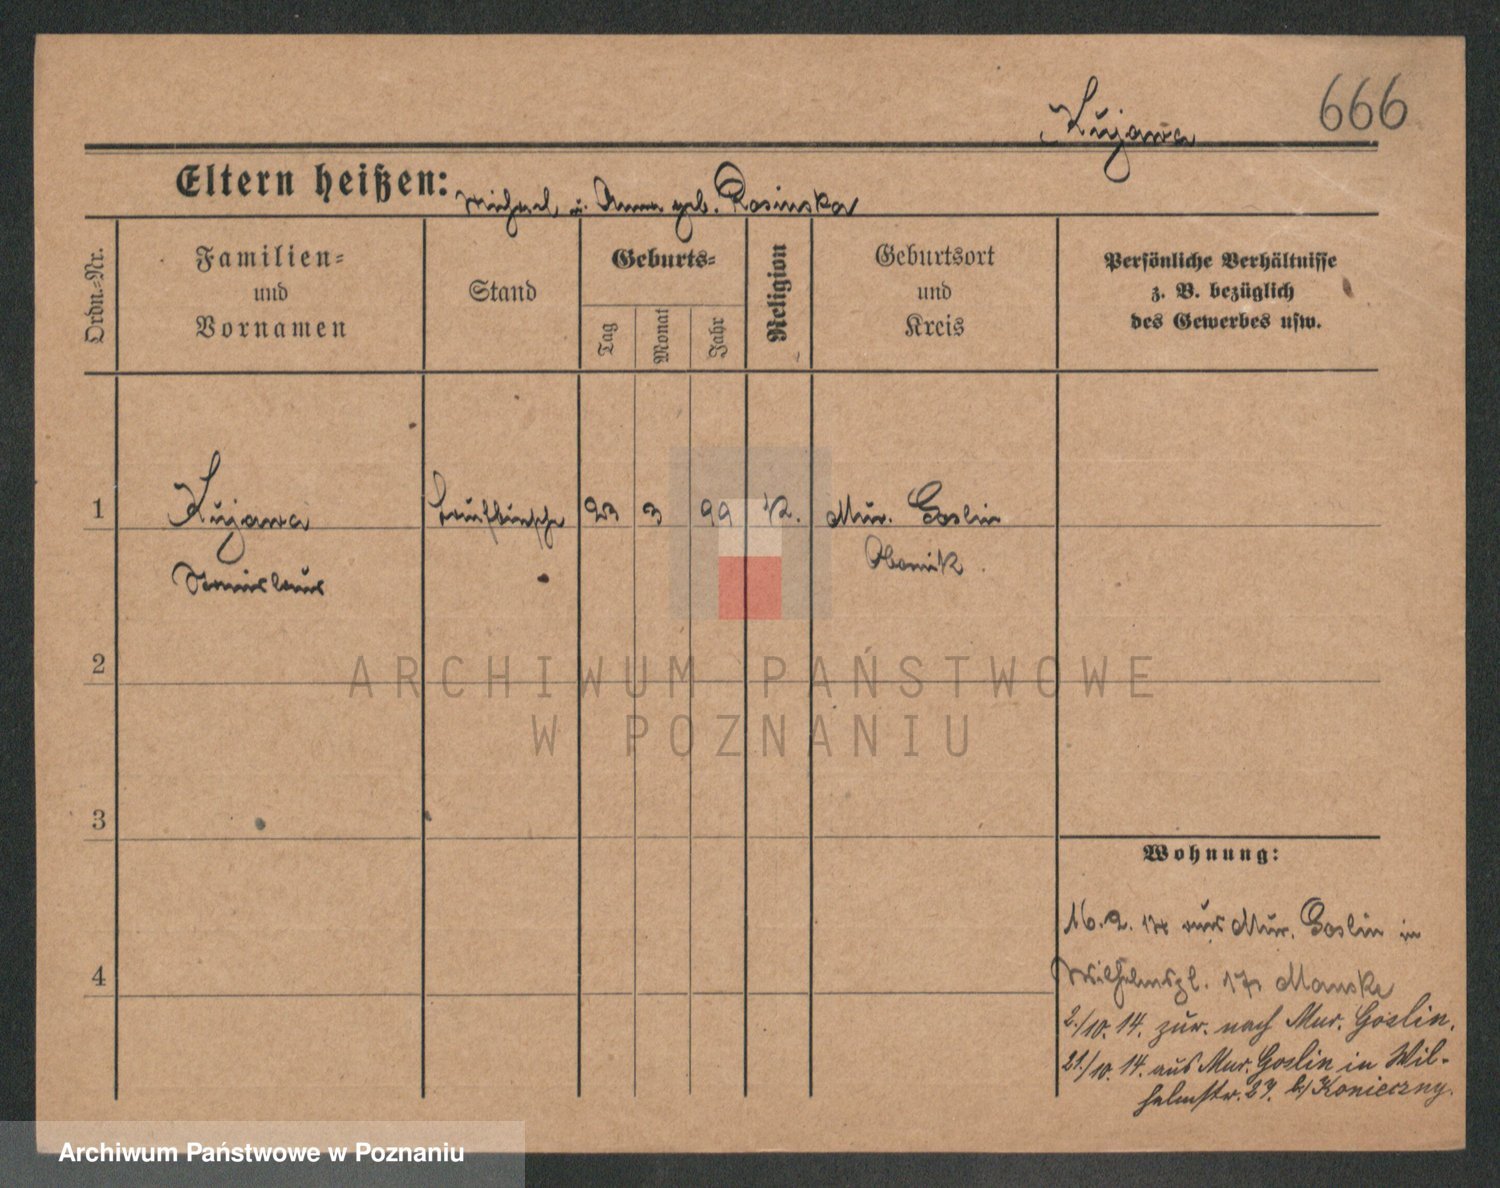 666
Kujawa
Eltern heißen: Michael u. Anna geb. Rosinska
Ordn.=Nr.
Familien=
und
Vornamen
Stand
Geburts=
Tag
Monat
Jahr
Religion
Geburtsort
und
Kreis
Persönliche Verhältnisse
z. B. bezüglich
des Gewerbes usw.
1 Kujawa Laufbursche 23 3 99 K. Mur. Goslin
Stanislaus
Obornik
2
3
4
Wohnung:
16.2.14 aus Mur. Goslin in
Wilhelmspl. 17 Manske
2./10.14. zur. nach Mur. Goslin.
21./10.14. aus Mur. Goslin in Wil-
helmstr. 27. b/ Konieczny.
ARCHIWUM PAŃSTWOWE
W POZNANIU
Archiwum Państwowe w Poznaniu